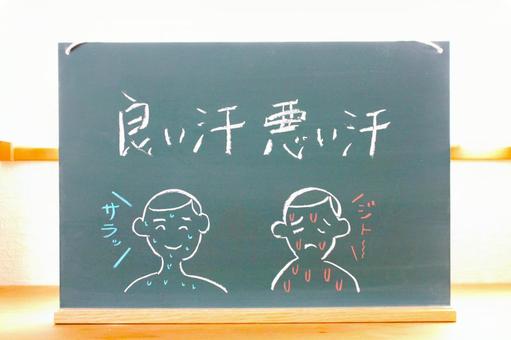 良い汗 悪い汗
サラッ
ジトー